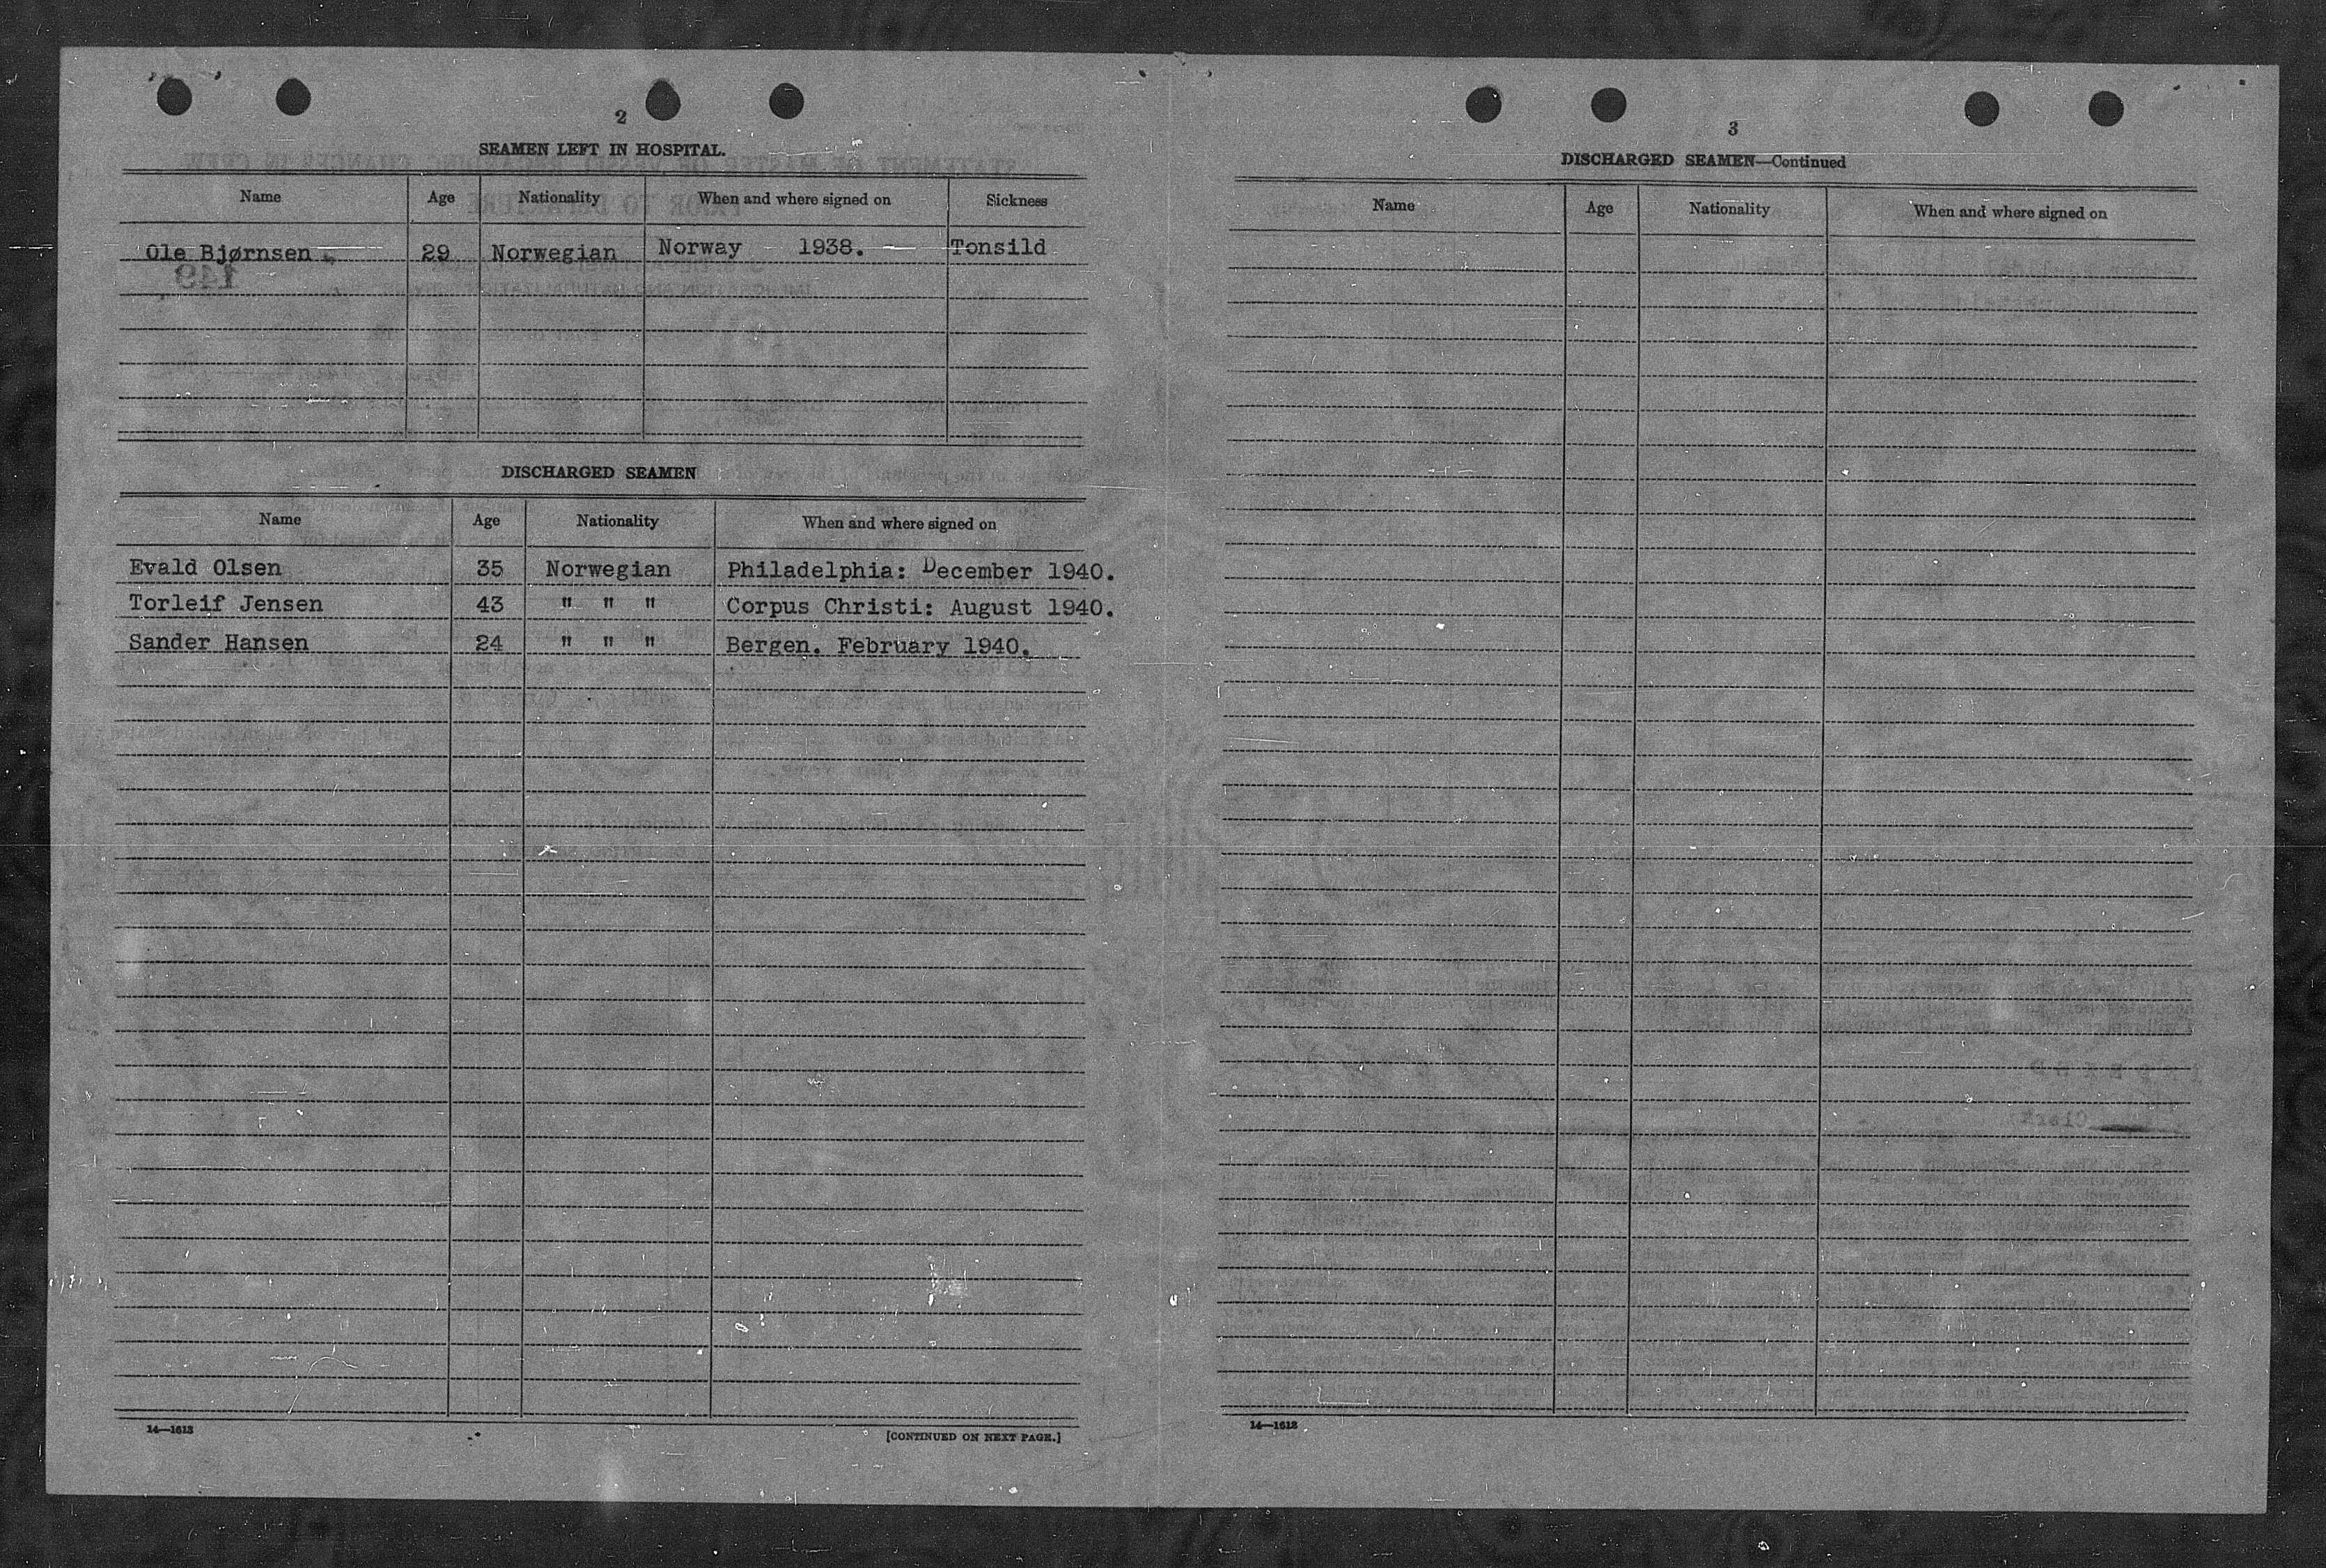 2
SEAMEN LEFT IN HOSPITAL.
Name Age Nationality When and where signed on Sickness
Ole Bjørnsen 29 Norwegian Norway 1938. Tonsild
DISCHARGED SEAMEN
Name Age Nationality When and where signed on
Evald Olsen 35 Norwegian Philadelphia: December 1940.
Torleif Jensen 43 " " " Corpus Christi: August 1940.
Sander Hansen 24 " " " Bergen. February 1940.
14—1613
[CONTINUED ON NEXT PAGE.]
3
DISCHARGED SEAMEN—Continued
Name Age Nationality When and where signed on
14—1613